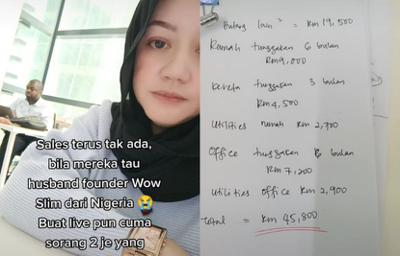 Sales terus tak ada,
bila mereka tau
husband founder Wow
Slim dari Nigeria 😭
Buat live pun cuma
sorang 2 je yang
Hutang lain² = RM 19,500
Rumah tunggakan 6 bulan
RM9,000
Kereta tunggakan 3 bulan
RM 4,500
Utilities rumah RM 2,700
Office tunggakan 6 bulan
RM 7,200
Utilities office RM 2,900
Total = RM 45,800